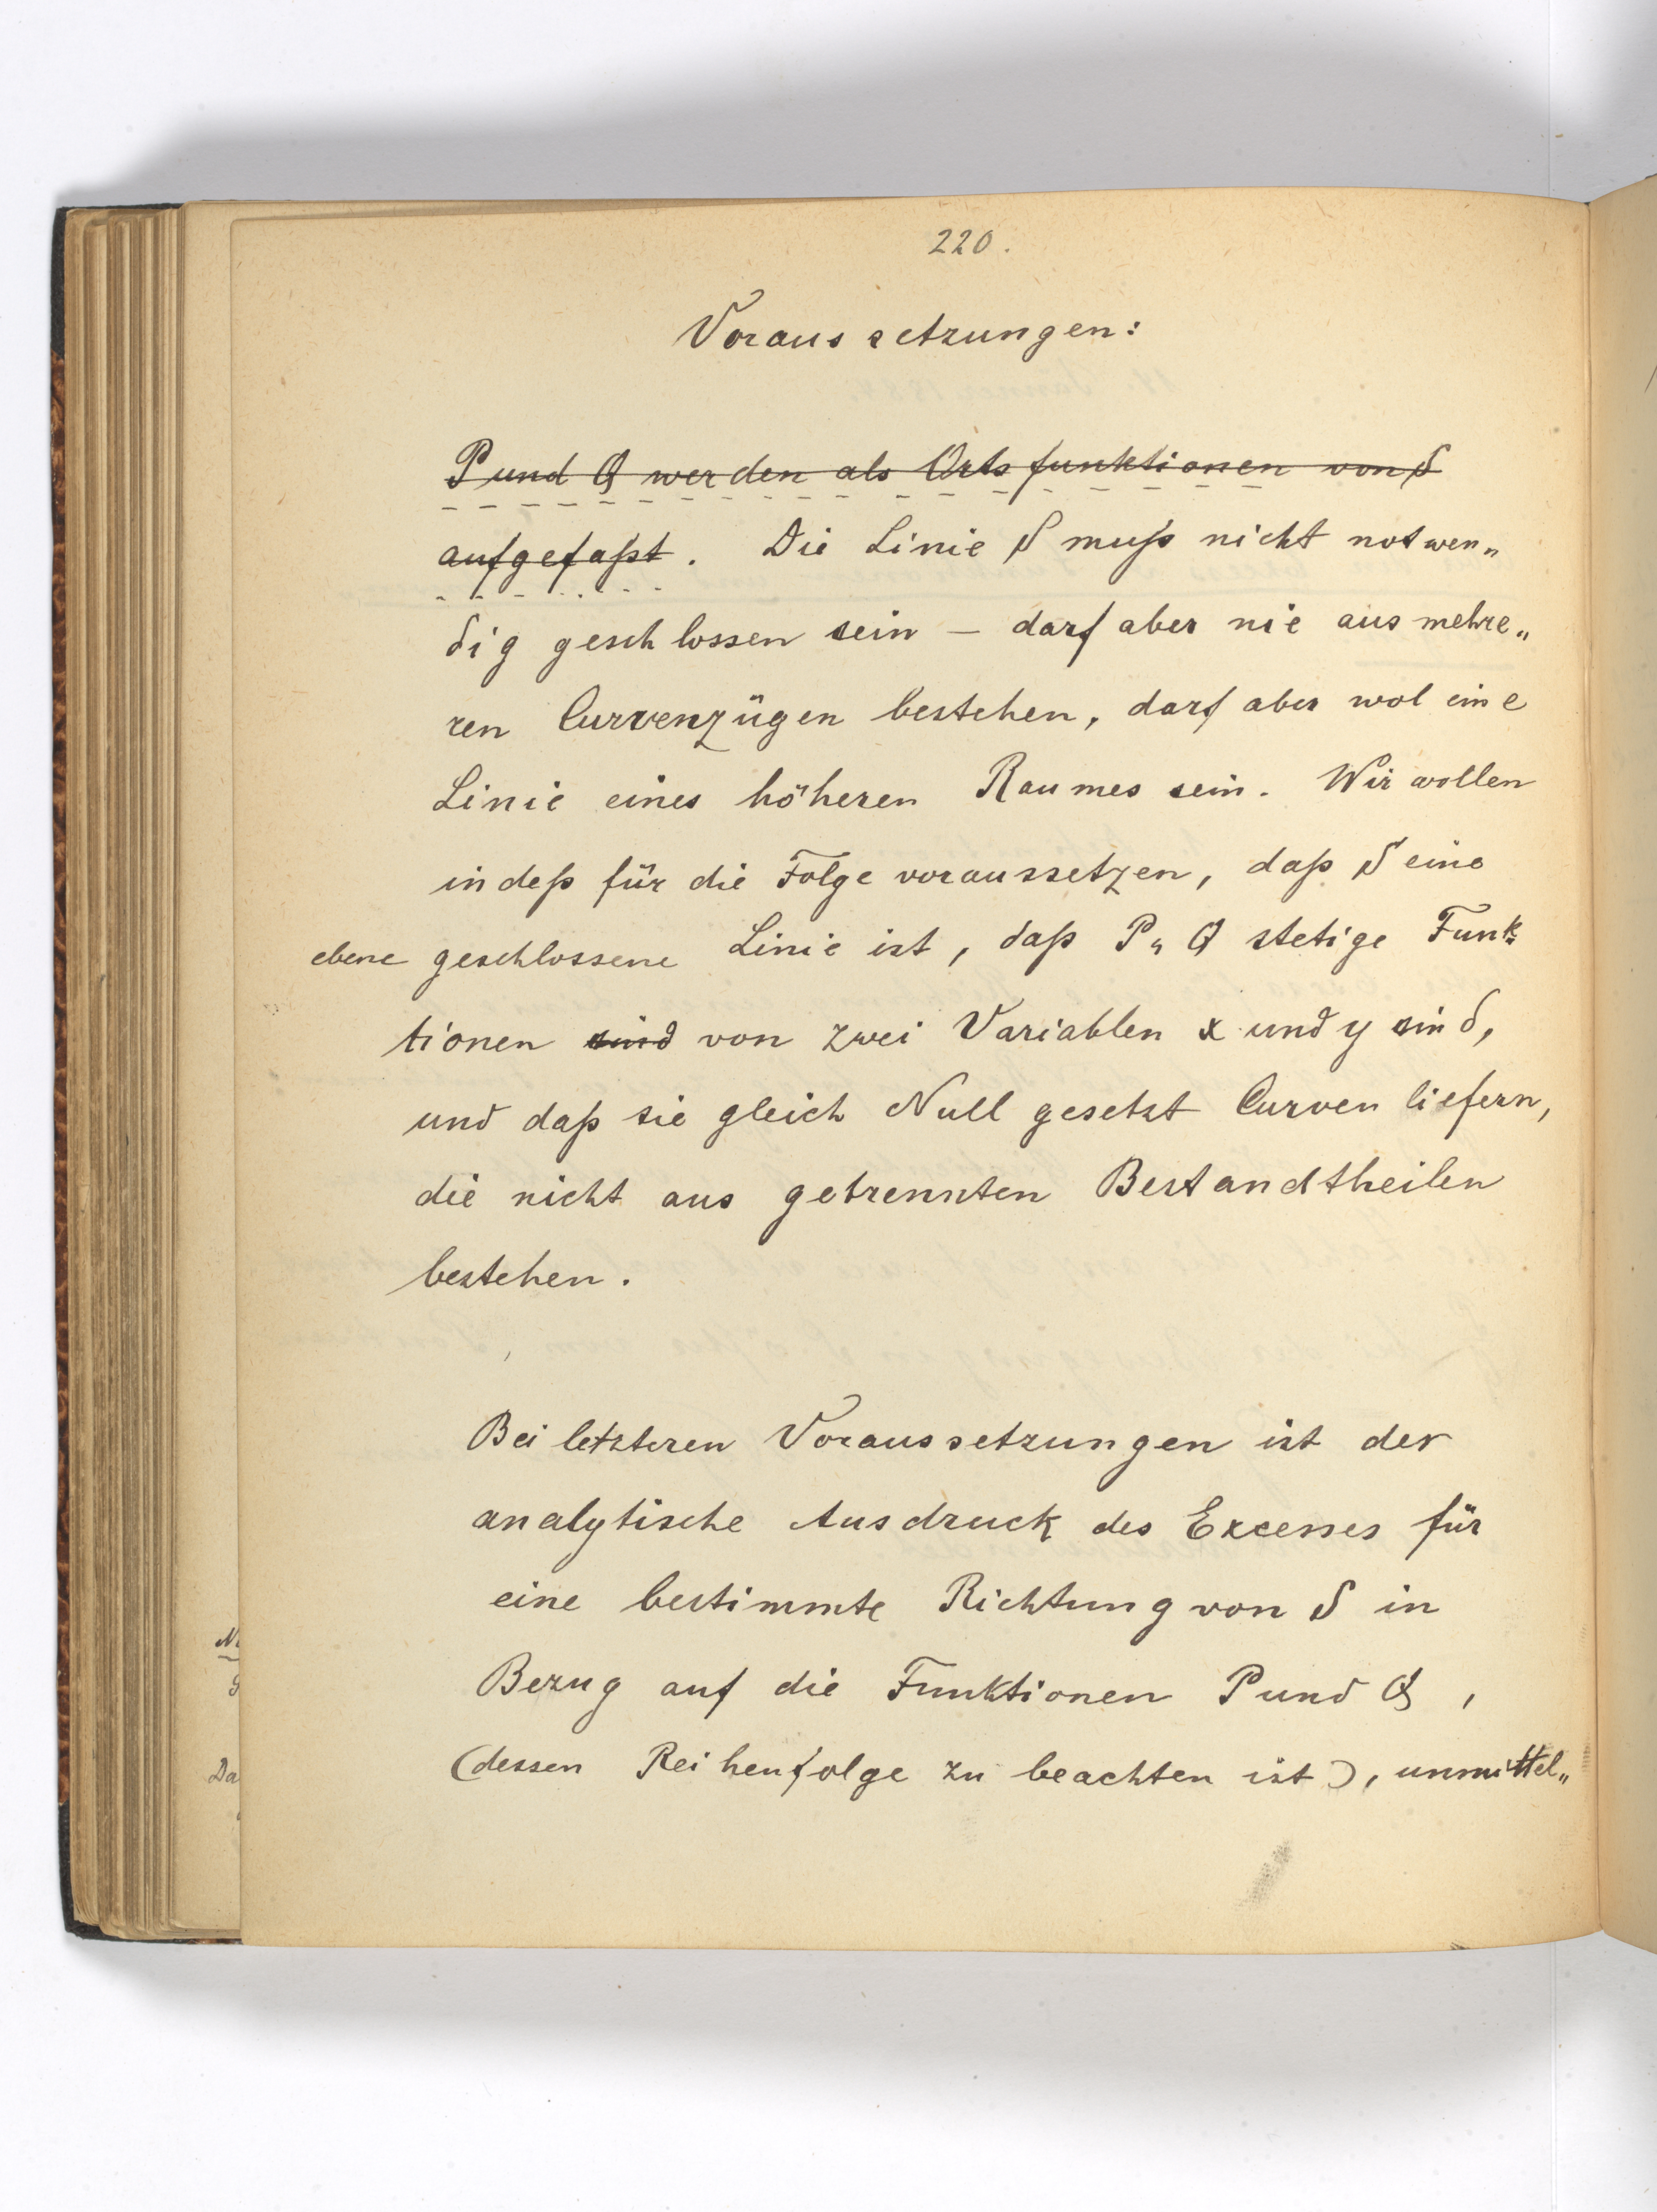 220.
Voraussetzungen:
P und Q werden als Ortsfunktionen von S
aufgefaßt. Die Linie S muß nicht notwen„
dig geschlossen sein – darf aber nie aus mehre„
ren Curvenzügen bestehen, darf aber wol eine
Linie eines höheren Raumes sein. Wir wollen
indeß für die Folge voraussetzen, daß S eine
ebene geschlossene Linie ist, daß P u Q stetige Funk-
tionen sind von zwei Variablen x und y sind,
und daß sie gleich Null gesetzt Curven liefern,
die nicht aus getrennten Bestandtheilen
bestehen.
Bei letzteren Voraussetzungen ist der
analytische Ausdruck des Excesses für
eine bestimmte Richtung von S in
Bezug auf die Funktionen P und Q,
(dessen Reihenfolge zu beachten ist), unmittel„
Da